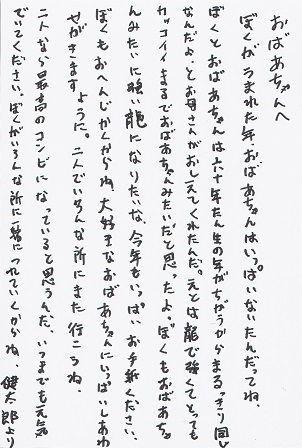 おばあちゃんへ
ぼくがうまれた年、おばあちゃんはいっぱいないたんだってね、
ぼくとおばあちゃんは六十年たん生の年がちがうからまるっきり同
なんだよ、とお母さんがおしえてくれたんだ。えとは龍で強くてとっても
カッコイイまるでおばあちゃんみたいだと思ったよ。ぼくもおばあち
んみたいに強い龍になりたいな、今年もいっぱいお手紙ください、
ぼくもおへんじかくからね、大好きなおばあちゃんにいっぱいしあわ
せがきますように。二人でいろんな所にまた行こうね、
二人なら最高のコンビになっていると思うんだ、いつまでも元気
でいてください、ぼくがいろんな所に一緒につれていくからね、健太郎より